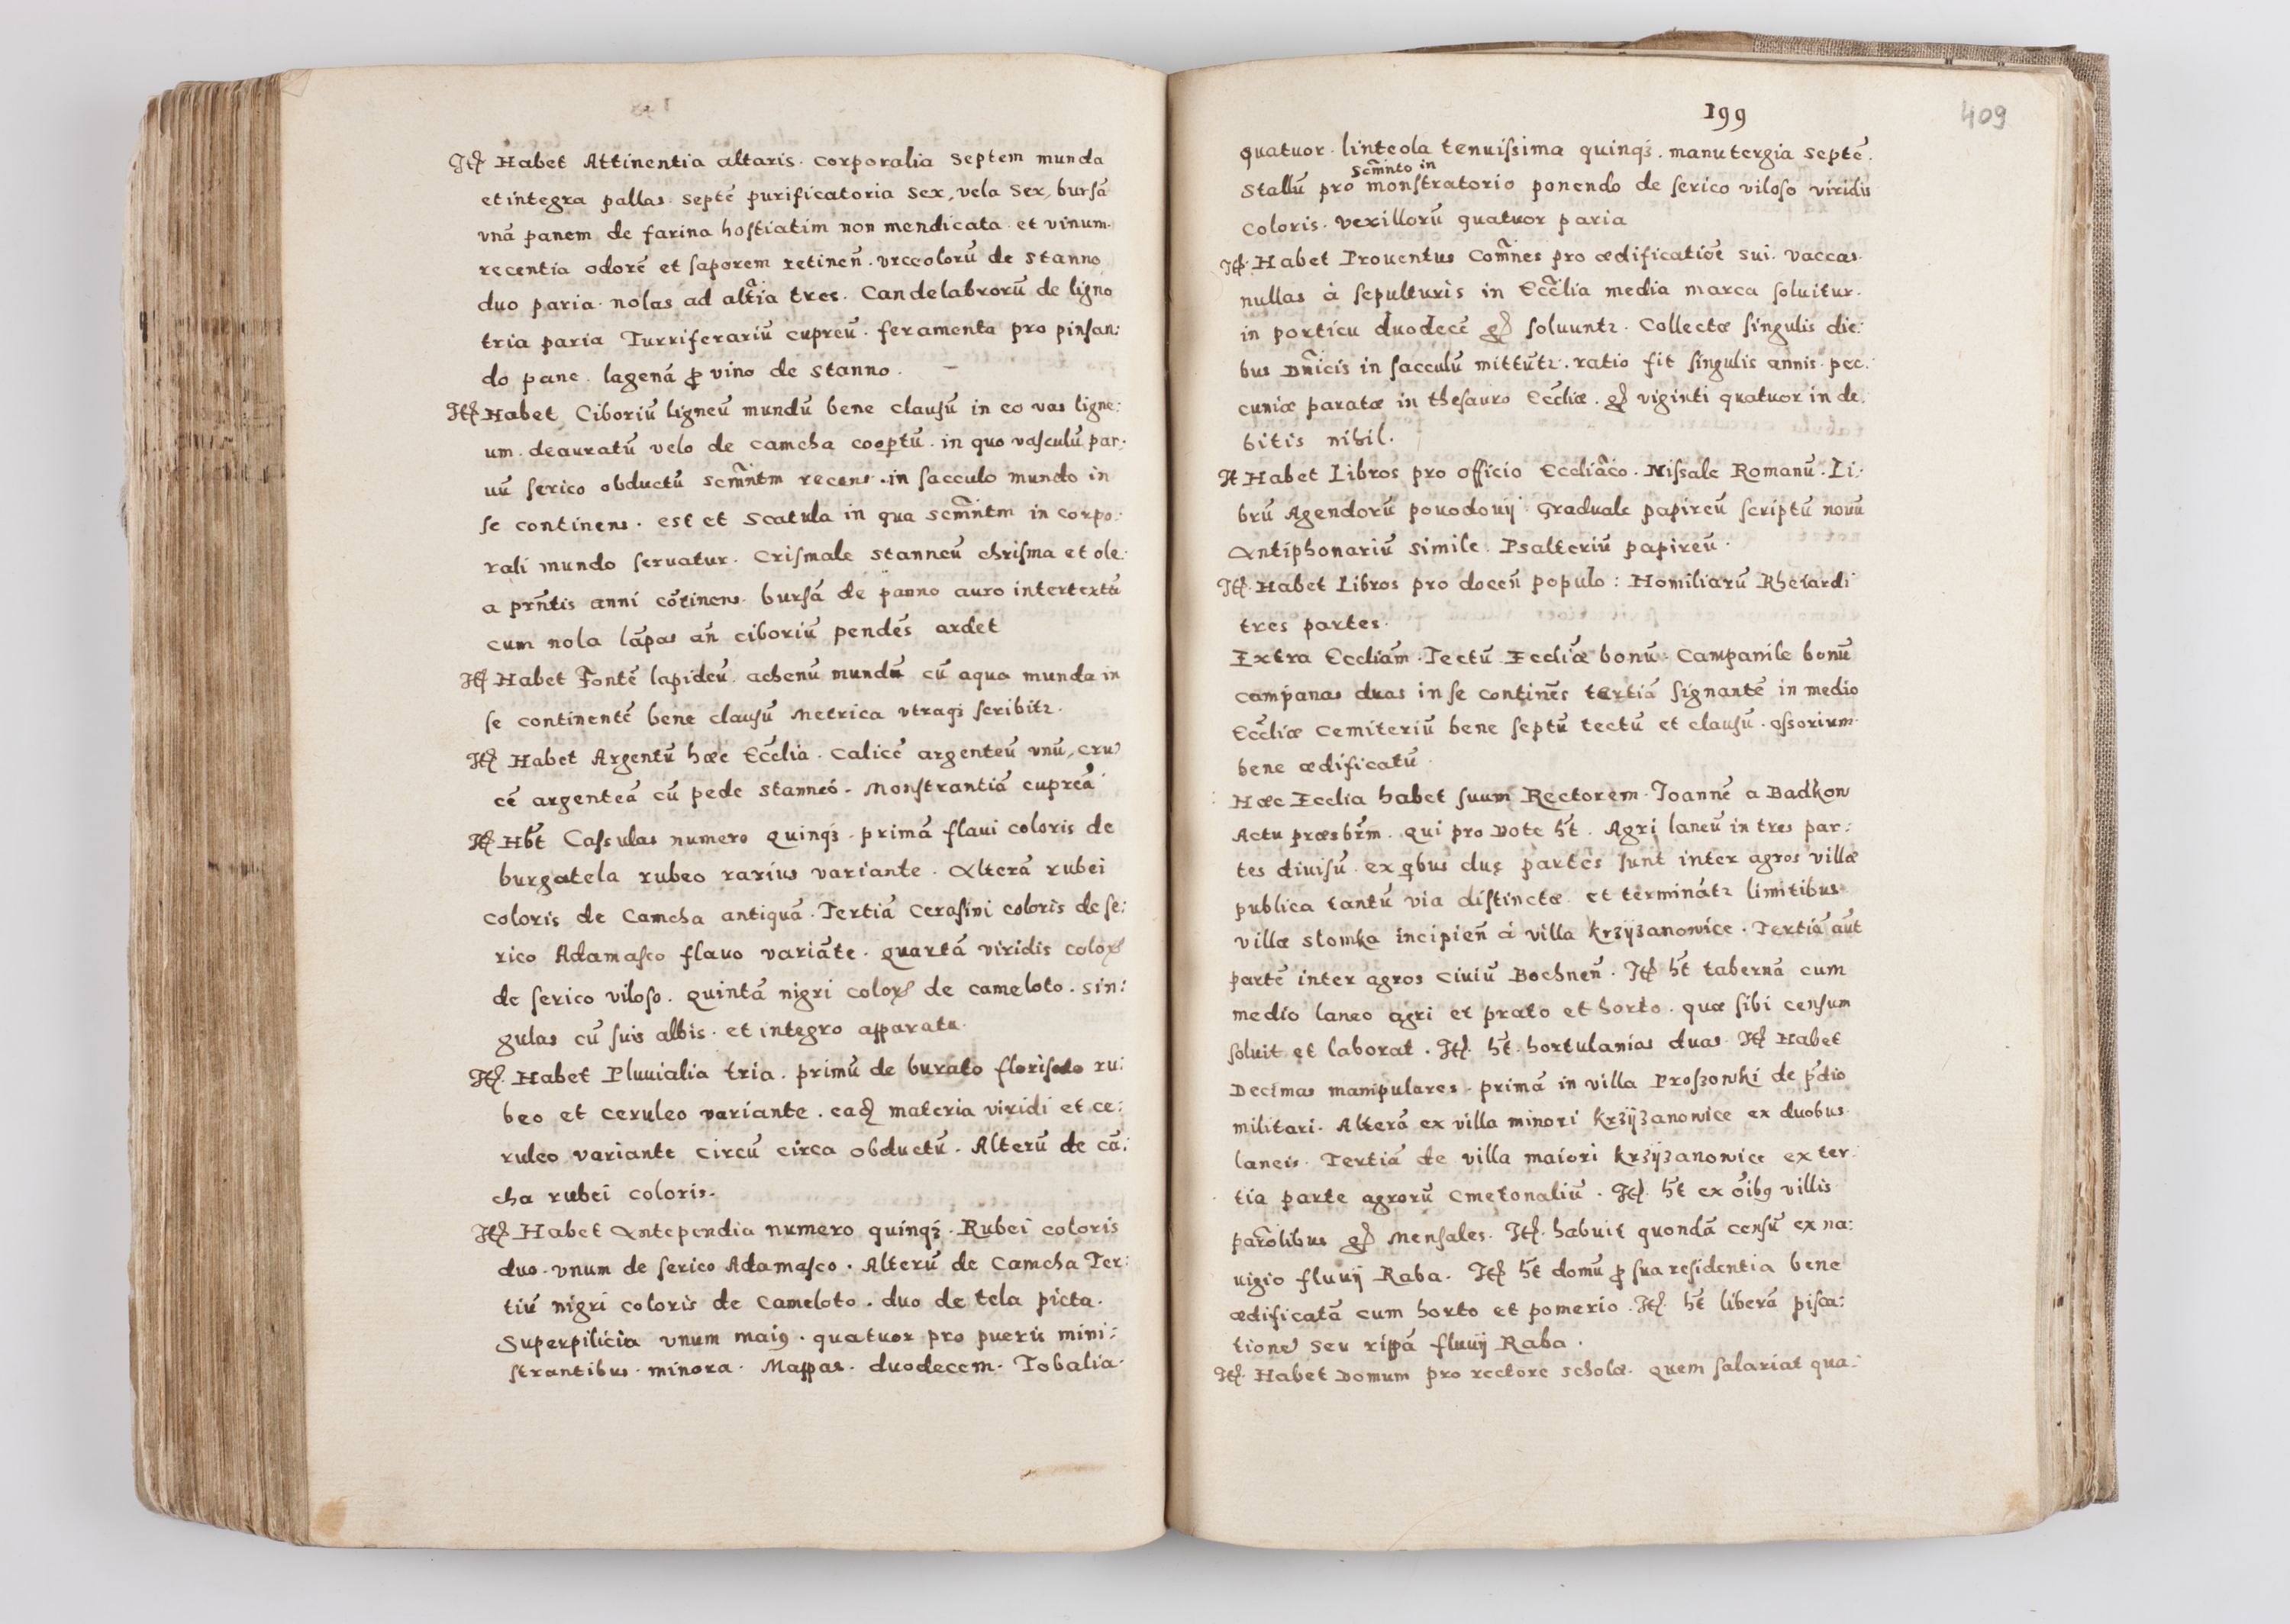 Itẽ Habet Attinentia altaris. Corporalia Septem munda
et integra pallas. Septẽ purificatoria Sex, vela Sex, bursã
vnã panem de farina hostiatim non mendicata. et vinum.
recentia odorẽ et saporem retineñ. vrceolorũ de Stanno
duo paria. nolas ad altãia tres. Candelabrorũ de ligno
tria paria Turriferariũ cupreũ. feramenta pro pinsan:
do pane. lagenã ꝓ vino de Stanno.
Itẽ Habet Ciboriũ ligneũ mundũ bene clausũ in eo vas ligne:
um. deauratũ velo de camcha cooptũ. in quo vasculũ par:
uũ serico obductũ scm̃ntm recens. in sacculo mundo in
se continens. est et Scatula in qua scm̃ntm in corpo:
rali mundo seruatur. Crismale stanneũ chrisma et ole:
a prñtis anni cõtinens. bursã de panno auro intertextã
cum nola lãpas añ ciboriũ pendẽs ardet
Itẽ Habet Fontẽ lapideũ. achenũ mundũ cũ aqua munda in
se continentẽ bene clausũ Metrica vtraqȝ scribitꝛ.
Itẽ Habet Argentũ hæc Eccĩlia. Calicẽ argenteũ vnũ, cru
cẽ argenteã cũ pede stanneó. Monstrantiã cupreã
Itẽ Hb̃t Cassulas numero quinqȝ. primã flaui coloris de
burgatela rubeo rarius variante. Alterã rubei
coloris de Camcha antiquã. Tertiã Cerasini coloris de se:
rico Adamasco flauo variãte. quartã viridis coloꝝ
de serico viloso. quintã nigri coloꝝ de cameloto. sin:
gulas cũ suis albis. et integro apparatu.
Itẽ. Habet Pluuialia tria. primũ de burato florisato ru:
beo et ceruleo variante. eadẽ materia viridi et ce:
ruleo variante circũ circa obductũ. Alterũ de cã:
cha rubei coloris.
Itẽ Habet Antependia numero quinqȝ. Rubei coloris
duo. vnum de serico Adamasco. Alterũ de Camcha Ter:
tiũ nigri coloris de Cameloto. duo de tela picta.
Superpilicia vnum maiꝰ. quatuor pro pueris mini:
strantibus. minora. Mappas. duodecem. Tobalia.
199
409
quatuor. linteola tenuissima quinqȝ. manutergia septẽ.
scm̃nto in
Stallũ pro monstratorio ponendo de serico viloso viridis
coloris. vexillorũ quatuor paria
Itẽ. Habet Prouentus Com̃nes pro ædificatiõe sui. vaccas.
nullas á sepulturis in Eccĩlia media marca soluitur.
in porticu duodecẽ gꝝ soluuntꝛ. Collectæ singulis die:
bus Dñicis in sacculũ mittũtꝛ. ratio fit singulis annis. pec:
cuniæ paratæ in thesauro Eccĩliæ. gꝝ viginti quatuor in de:
bitis nihil.
It Habet Libros pro officio Eccliãco. Missale Romanũ. Li:
brũ Agendorũ pouodouij Graduale papireũ scriptũ nouũ
Antiphonariũ simile. Psalteriũ papireũ.
Itẽ. Habet Libros pro doceñ populo: Homiliarũ Rheiardi
tres partes.
Extra Eccliãm. Tectũ Eccliæ bonũ. Campanile bonũ
campanas duas in se continẽs tertiã signantẽ in medio
Eccĩliæ Cemiteriũ bene septũ tectũ et clausũ. ossorium.
bene ædificatũ.
Hæc Ecclia habet suum Rectorem. Joannẽ a Badkow
Actu præsbr̃m. qui pro Dote h̃t. Agri laneũ in tres par:
tes diuisũ. ex qbus duę partes sunt inter agros villæ
publica tantũ via distinctæ. et terminãtꝛ limitibus
villæ stomka incipieñ á villa krzÿzanowice. Tertiã aũt
partẽ inter agros Ciuiũ Bochneñ. Itẽ h̃t tabernã cum
medio laneo agri et prato et horto. quæ sibi censum
soluit et laborat. Itẽ. h̃t. hortulanias duas. Itẽ Habet
Decimas manipulares. primã in villa Proszowki de p̃dio
militari. Alterã ex villa minori krzÿzanowice ex duobus.
laneis. Tertiã de villa maiori krzÿzanowice ex ter:
tia parte agrorũ Cmetonaliũ. Itẽ. h̃t ex õibꝰ villis
parõlibus gꝝ Mensales. Itẽ. habuit quondã censũ ex na:
uigio fluuij Raba. Itẽ h̃t domũ ꝓ sua residentia bene
ædificatã cum horto et pomerio. Itẽ. h̃t liberã pisca:
tionẽ seu rippã fluuij Raba.
Itẽ. Habet Domum pro rectore scholæ. quem salariat qua: